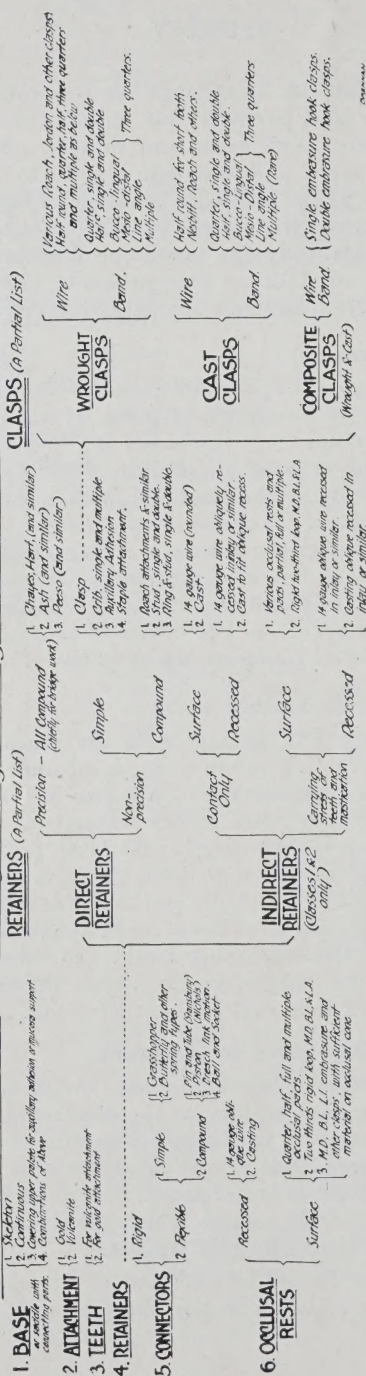 1. BASE
or saddle with
connecting parts.
1. Skeleton
2. Continuous
3. Covering upper palate for capillary adhesion or mucosa support
4. Combinations of above
2. ATTACHMENT
1. Gold
2. Vulcanite
3. TEETH
1. For vulcanite attachment
2. For gold attachment
4. RETAINERS
5. CONNECTORS
1. Rigid
2 Movable
1. Simple
1. Grasshopper
2. Butterfly and other
spring types.
2 Compound
1. Pin and Tube (Stansbury)
2. Piston (Nichols)
3. Preach link motion.
4. Ball and Socket
6. OCCLUSAL
RESTS
Recessed
1. 14 gauge obli-
que wire
2. Casting
Surface
1. Quarter, half, full and multiple
occlusal pads.
2. Two thirds rigid loop, M.D, B.L, & L.A.
3. M.D, B.L, L.I. embrasure and
other clasps, with sufficient
material on occlusal cone
RETAINERS (A Partial List)
DIRECT
RETAINERS
Precision - All Compound
(chiefly for bridge work)
1. Chayes, Hart, (and similar)
2. Ash (and similar)
3. Peeso (and similar)
Non-
precision
Simple
1. Clasp
2. Crib, single and multiple
3. Auxiliary Adhesion
4. Staple attachment.
Compound
1. Roach attachments & similar
2. Stud, single and double.
3. Ring & stud, single & double.
INDIRECT
RETAINERS
(Classes 1 & 2
only)
Contact
Only
Surface
1. 14 gauge wire (rounded)
2. Cast.
Recessed
1. 14 gauge wire obliquely re-
cessed in inlay or similar.
2. Cast to fit oblique recess.
Carrying
stress of
teeth and
mastication
Surface
1. Various occlusal rests and
pads, partial, full or multiple.
2. Rigid two-third loop, M.D, B.L, & L.A
Recessed
1. 14 gauge oblique wire recessed
in inlay or similar.
2. Casting oblique recessed in
inlay or similar.
CLASPS (A Partial List)
WROUGHT
CLASPS
Wire
Various Roach, Jordon and other clasps
Half round, quarter, half, three quarters
and multiple as below
Band.
Quarter, single and double
Half, single and double
Bucco-lingual
Mesio-distal
Line angle
Three quarters
Multiple
CAST
CLASPS
Wire
Half round for short tooth
Nesbitt, Roach and others.
Band.
Quarter, single and double
Half, single and double.
Bucco-Lingual
Mesio-Distal
Line angle
Three quarters
Multiple (Rare)
COMPOSITE
CLASPS
(Wrought & Cast)
Wire
Band
Single embrasure hook clasps.
Double embrasure hook clasps.